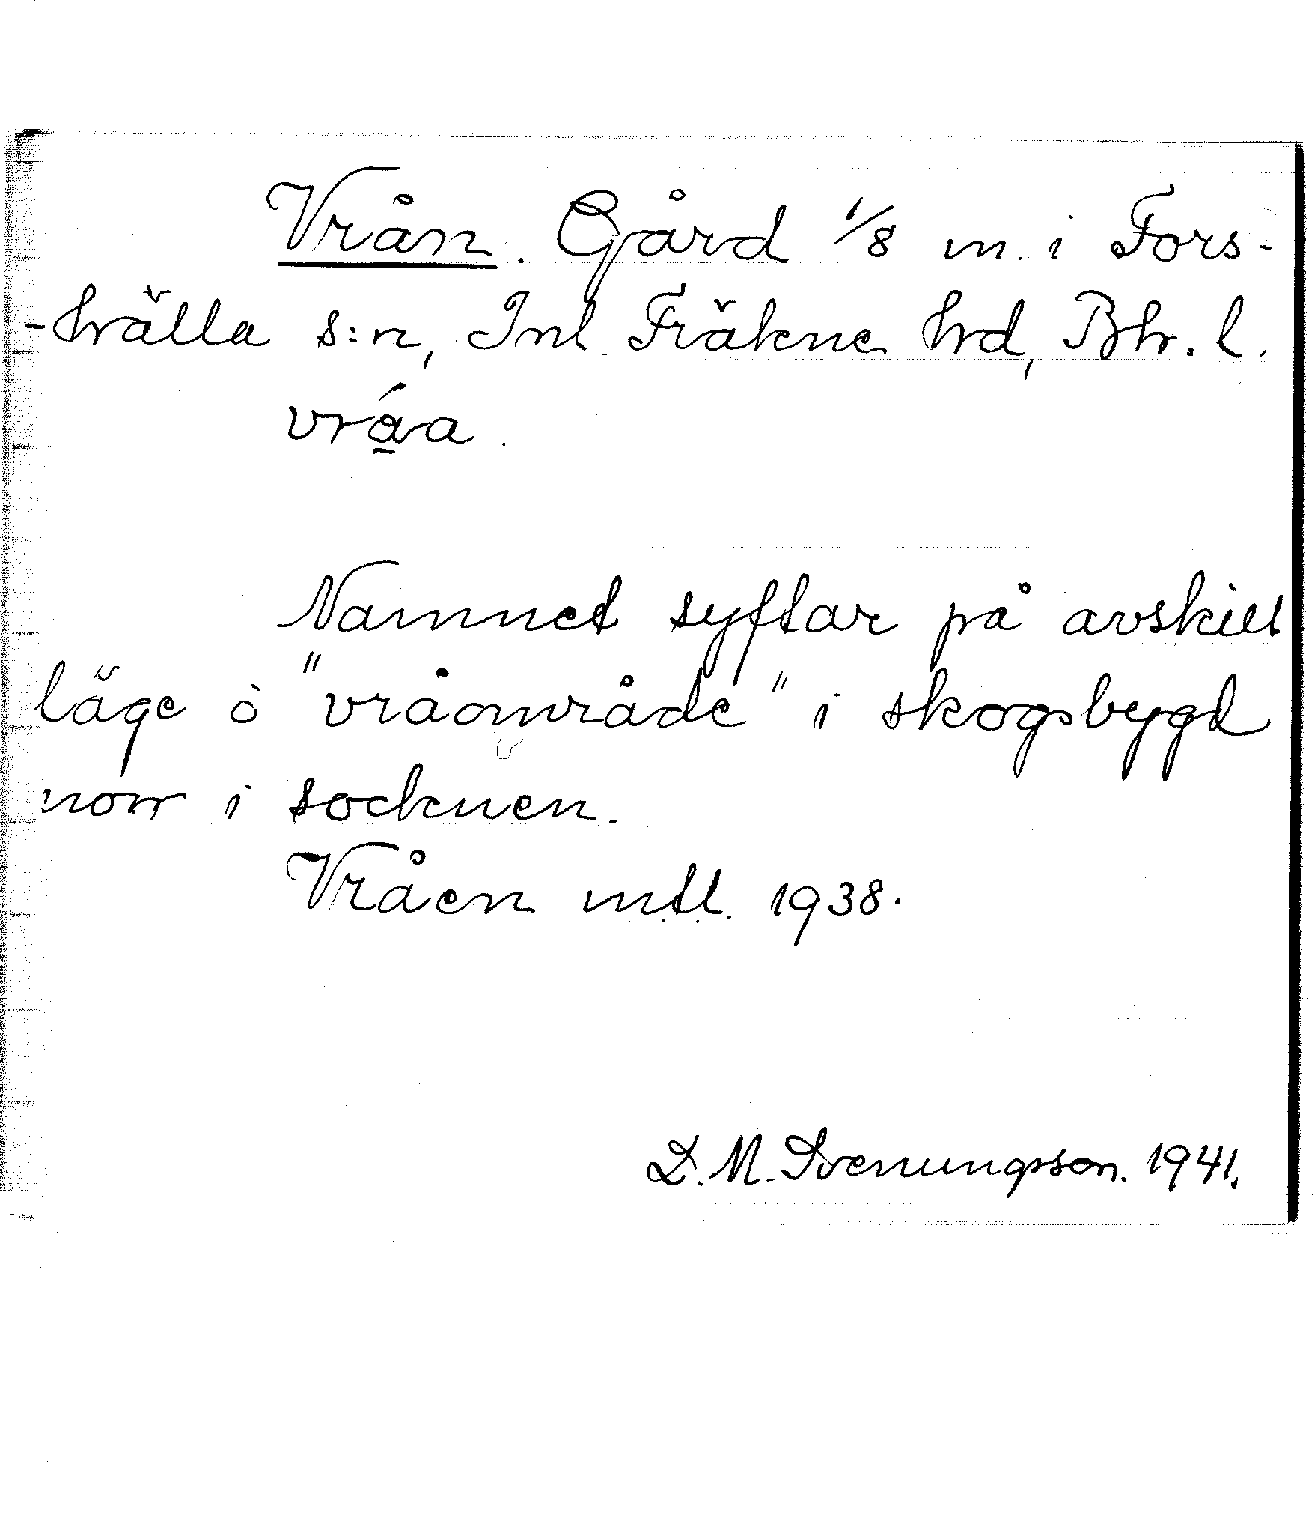 Vrån. Gård 1/8 m. i Fors-
-hälla s:n, Inl. Fräkne hd, Bh. l.
vrá̱a.
Namnet syftar på avskilt
läge ò "vråområde" i skogsbygd
norr i socknen.
Vråen mtl. 1938.
D. M. Svenungsson. 1941.